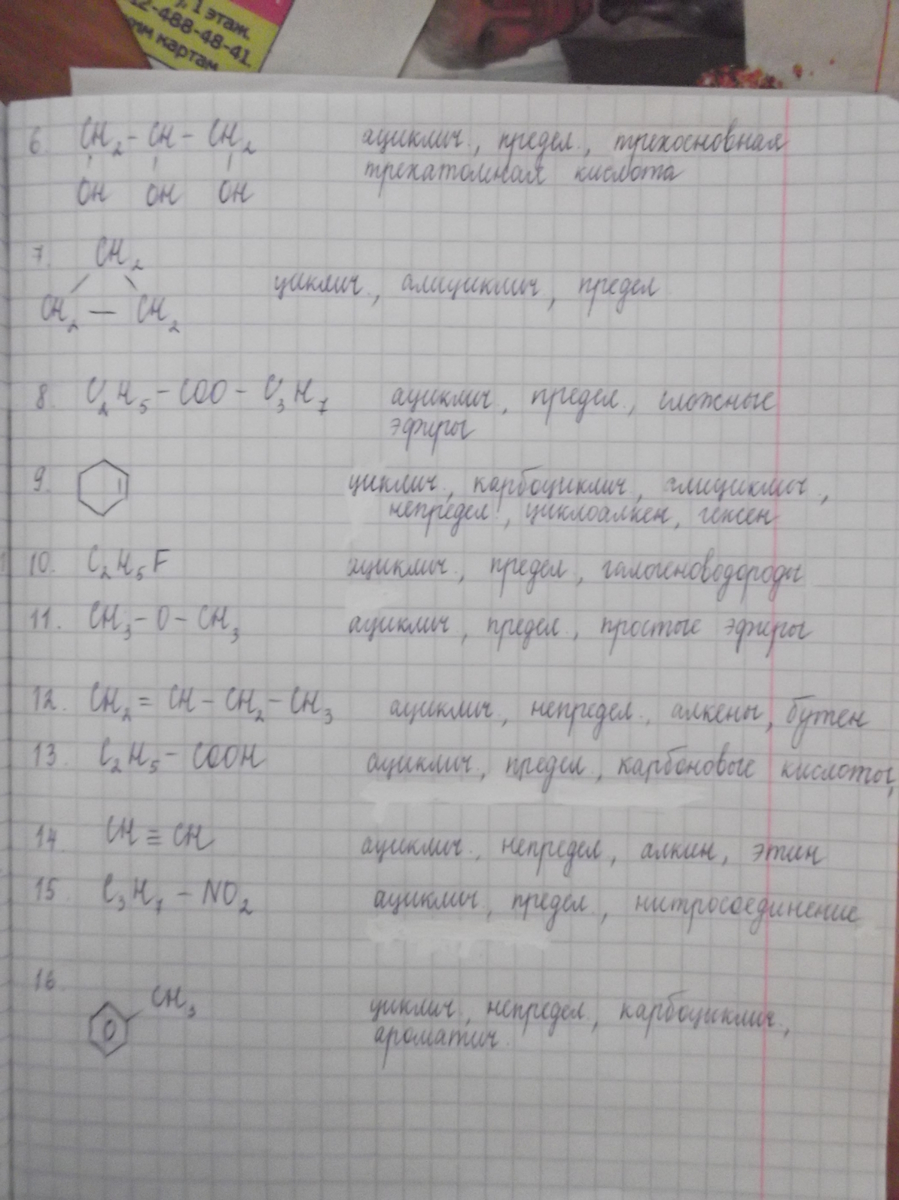 ), 1 этаж.
12-488-48-41.
им картам
6 CH₂ - CH - CH₂ ациклич., предел., трехосновная
OH OH OH трехатомная кислота
7. CH₂
CH₂ — CH₂ циклич., алициклич, предел
8. C₂H₅ - COO - C₃H₇ ациклич, предел., сложные
эфиры
9. циклич., карбоциклич, алициклич,
непредел., циклоалкен, гексен
10. C₂H₅F ациклич., предел., галогеноводороды
11. CH₃ - O - CH₃ ациклич, предел., простые эфиры
12. CH₂ = CH - CH₂ - CH₃ ациклич., непредел., алкены, бутен
13. C₂H₅ - COOH ациклич, предел., карбоновые кислоты,
14. CH ≡ CH ациклич., непредел., алкин, этин
15 C₃H₇ - NO₂ ациклич, предел., нитросоединение
16
CH₃ циклич., непредел., карбоциклич.,
ароматич.